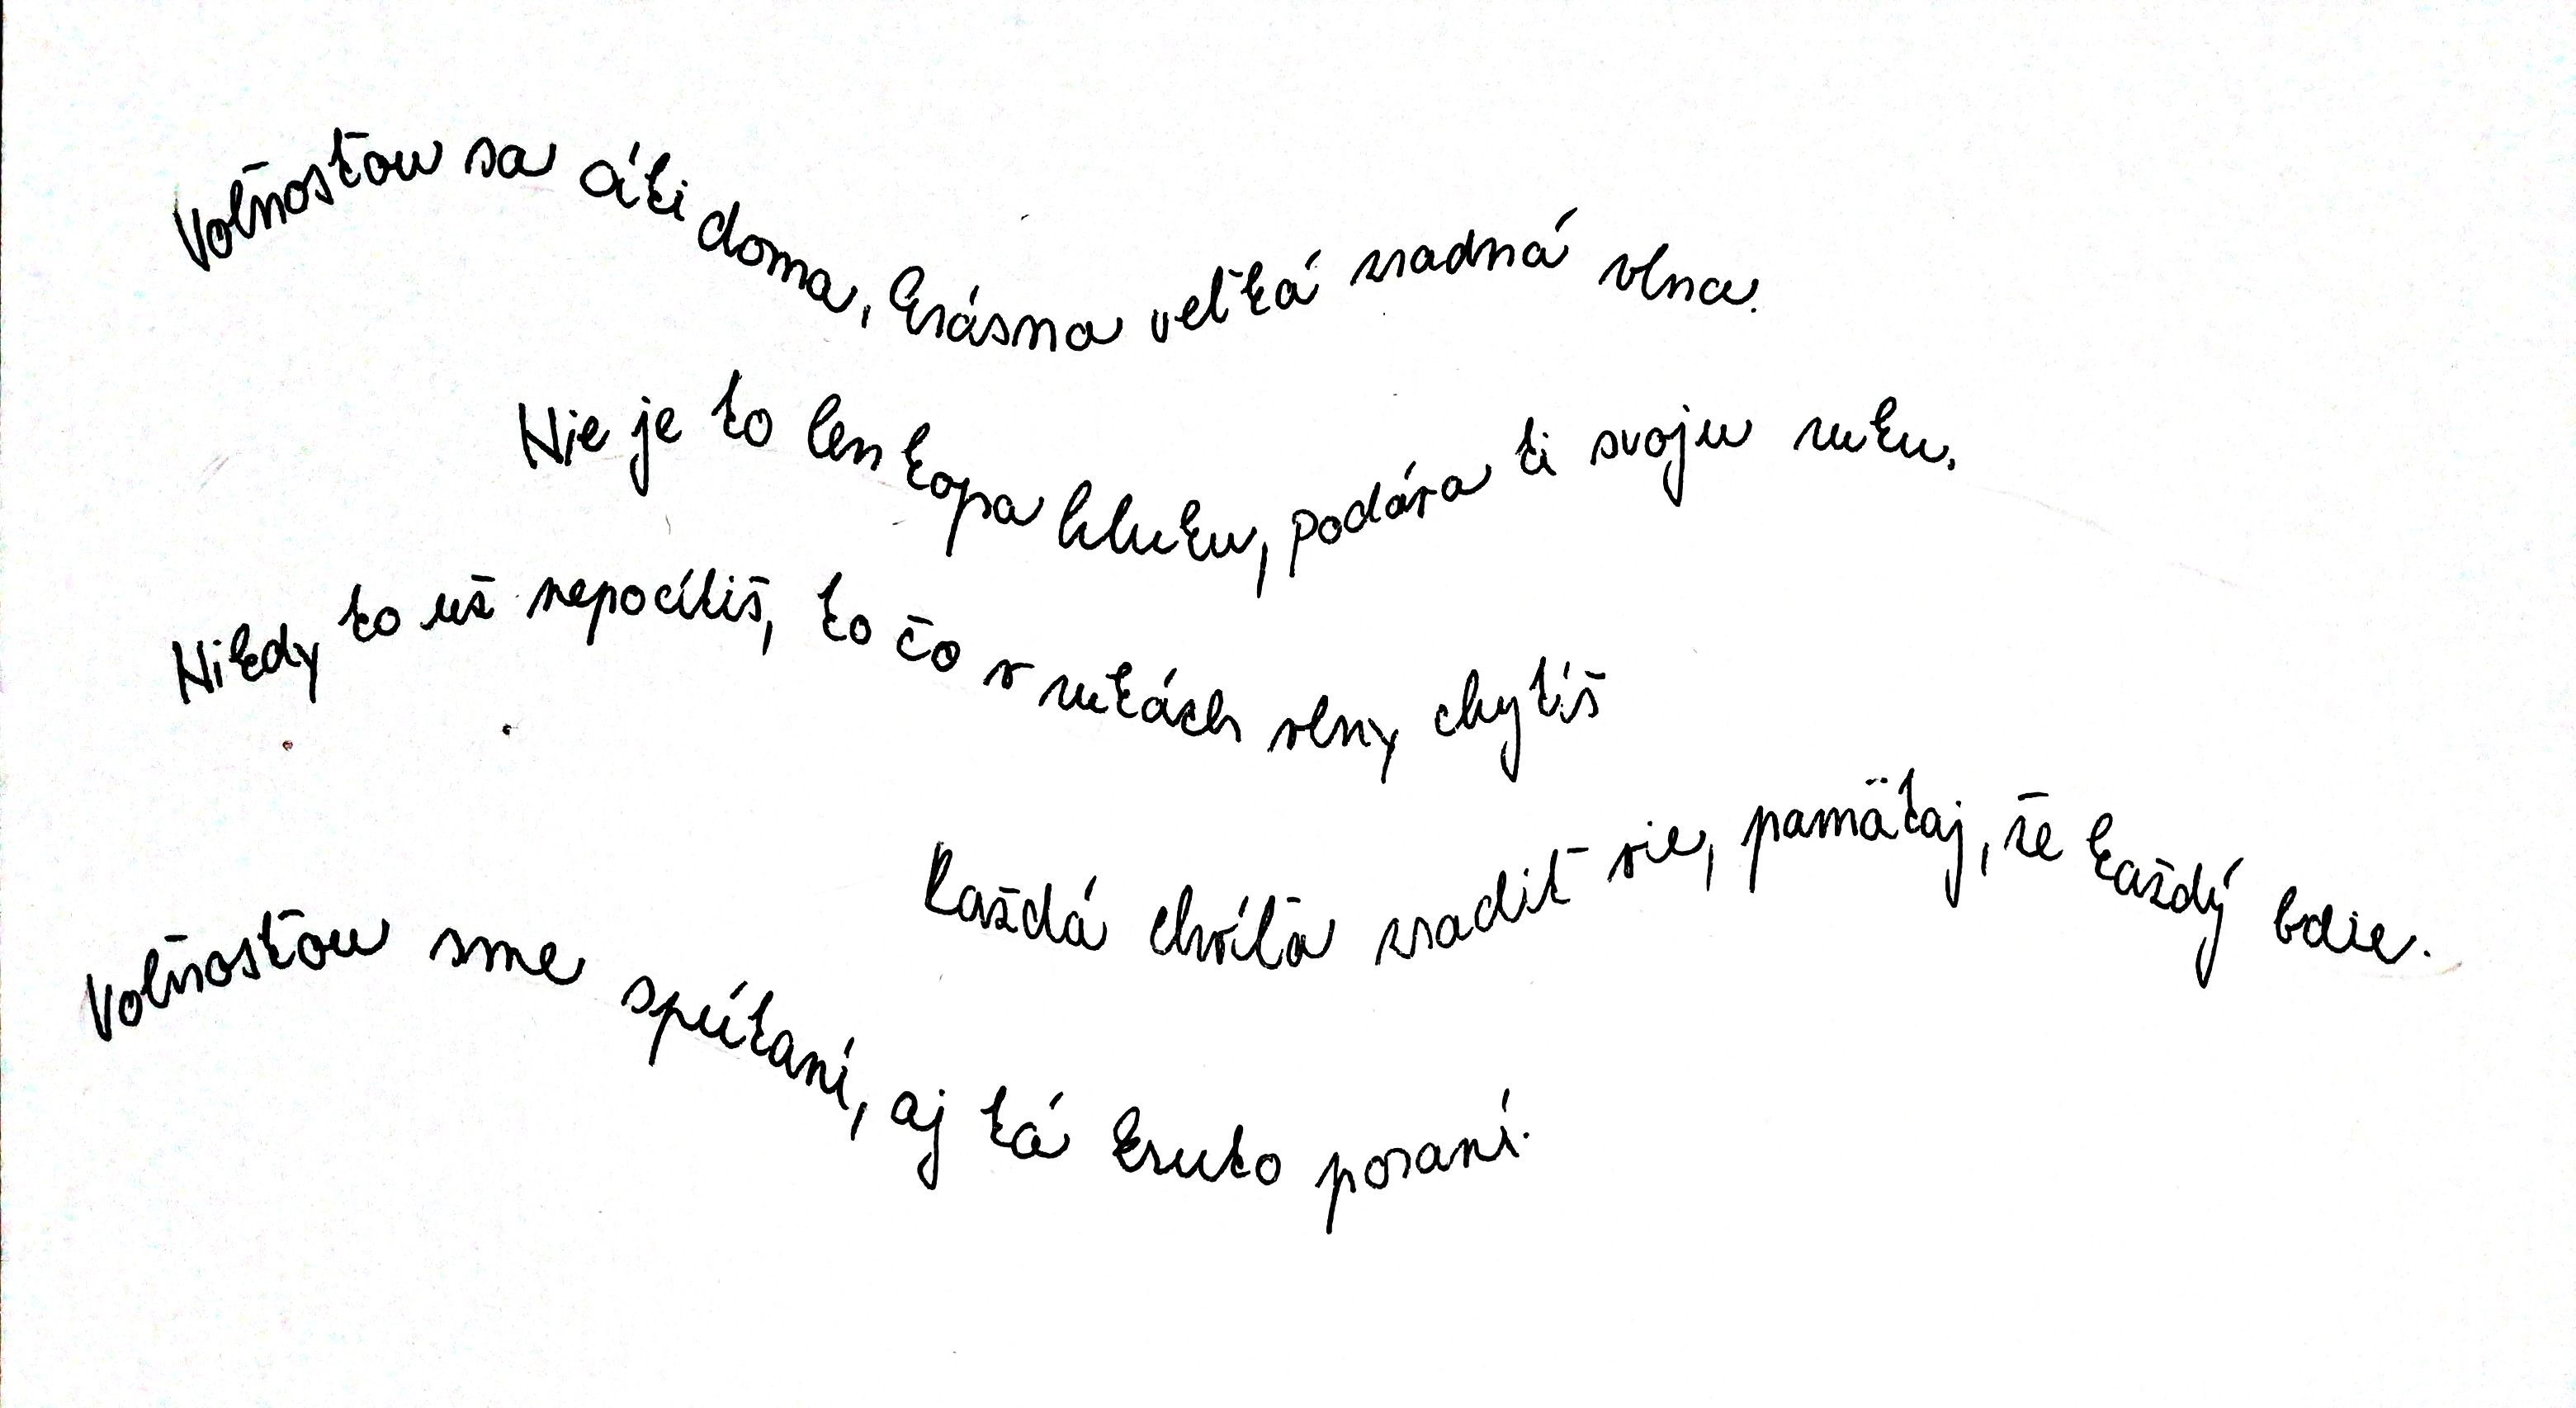 Voľňosťou sa cíti doma, krásna veľká zradná vlna.
Nie je to len kopa hluku, podáva ti svoju ruku.
Nikdy to už nepocítiš, to čo v rukách vlny chytíš
Každá chvíľa zradiť vie, pamätaj, že každý bdie.
Voľňosťou sme spútaní, aj tá kruto poraní.